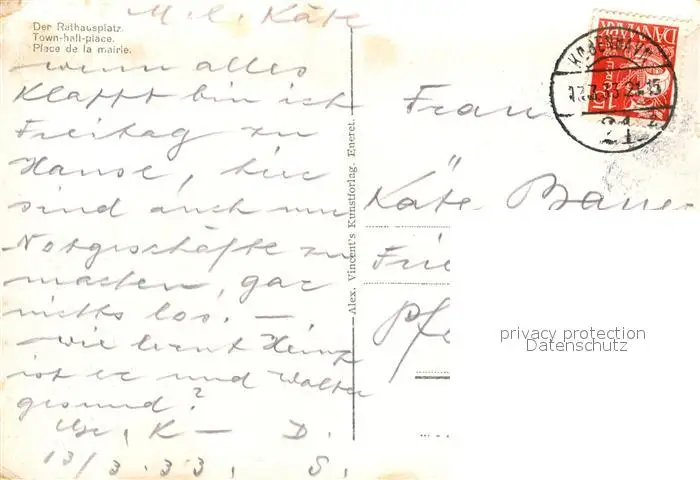 M. l. Käte
Der Rathausplatz.
Town-hall-place.
Place de la mairie.
wenn alles
klappt bin ich
Freitag zu
Hause, hier
sind auch nur
Notgeschäfte zu
machen, gar
nichts los. —
wie lernt Heinz
ist er und Walter
gesund?
K — D.
13/3.33. S.
Alex. Vincent's Kunstforlag. Eneret.
DANMARK
KØBENHAVN
21.15
21
Frau
Käte Baue
Frie
Pf
privacy protection
Datenschutz